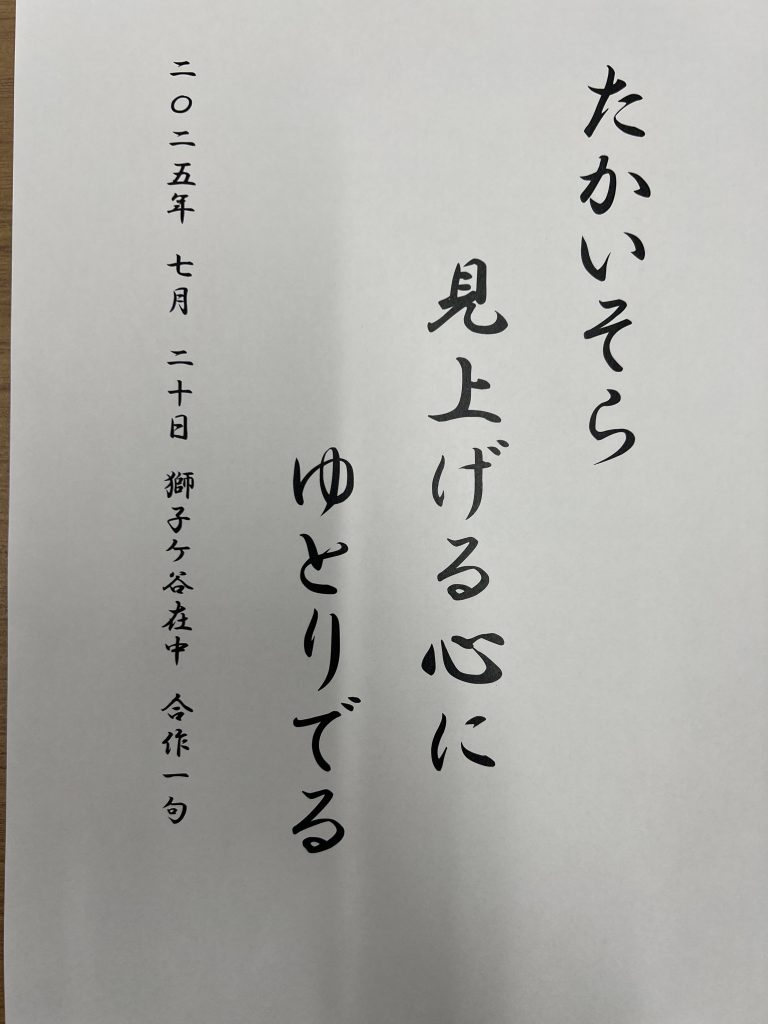 たかいそら
見上げる心に
ゆとりでる
二〇二五年 七月 二十日 獅子ケ谷在中 合作一句